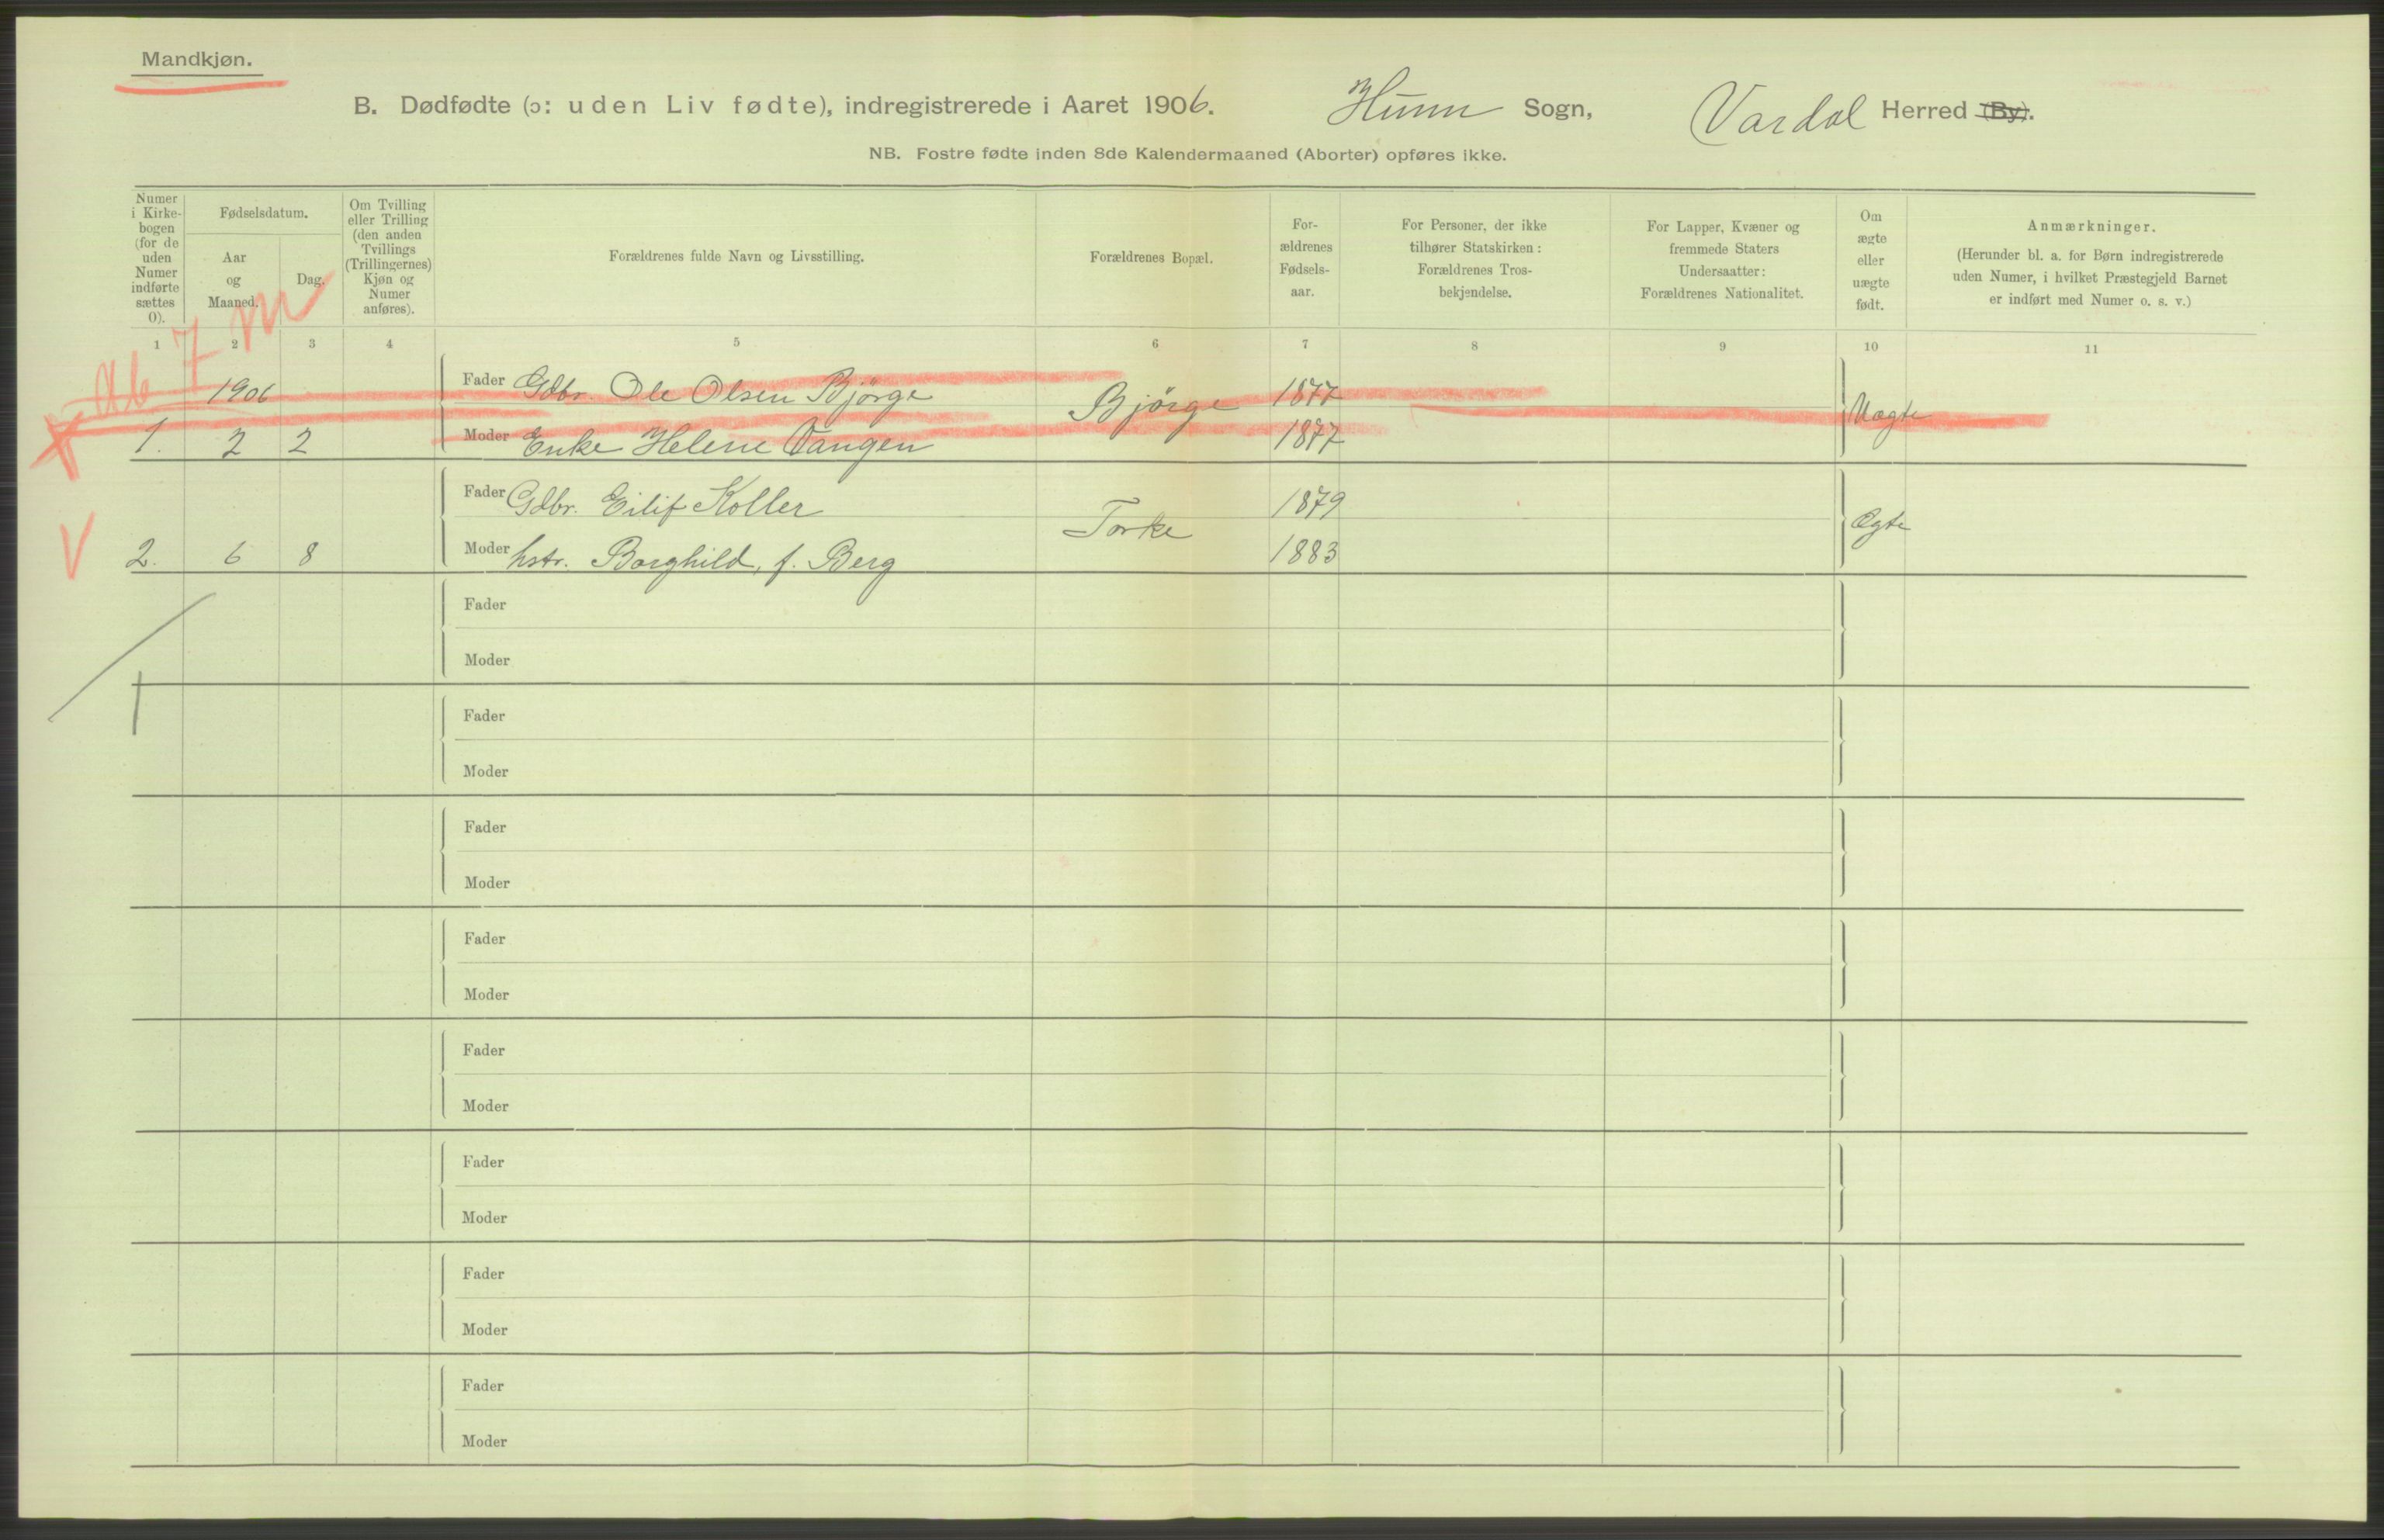 Mandkjøn.
B. Dødfødte (ɔ: uden Liv fødte), indregistrerede i Aaret 1906. Hunn Sogn, Vardal Herred (By).
NB. Fostre fødte inden 8de Kalendermaaned (Aborter) opføres ikke.
Numer i Kirke-bogen (for de uden Numer indførte sættes 0).
Fødselsdatum.
Aar og Maaned.
Dag.
Om Tvilling eller Trilling (den anden Tvillings (Trillingernes) Kjøn og Numer anføres).
Forældrenes fulde Navn og Livsstilling.
Forældrenes Bopæl.
For-ældrenes Fødsels-aar.
For Personer, der ikke tilhører Statskirken: Forældrenes Tros-bekjendelse.
For Lapper, Kvæner og fremmede Staters Undersaatter: Forældrenes Nationalitet.
Om ægte eller uægte født.
Anmærkninger.
(Herunder bl. a. for Børn indregistrerede uden Numer, i hvilket Præstegjeld Barnet er indført med Numer o. s. v.)
1 2 3 4 5 6 7 8 9 10 11
Ab 7 m
1906 Fader Gdbr. Ole Olsen Bjørge Bjørge 1877 Uægte
1. 2 2 Moder Enke Helene Vangen 1877
Fader Gdbr. Eilif Koller Torke 1879 Ægte
V 2. 6 8 Moder hstr. Borghild, f. Berg 1883
Fader
Moder
Fader
Moder
Fader
Moder
Fader
Moder
Fader
Moder
Fader
Moder
Fader
Moder
Fader
Moder